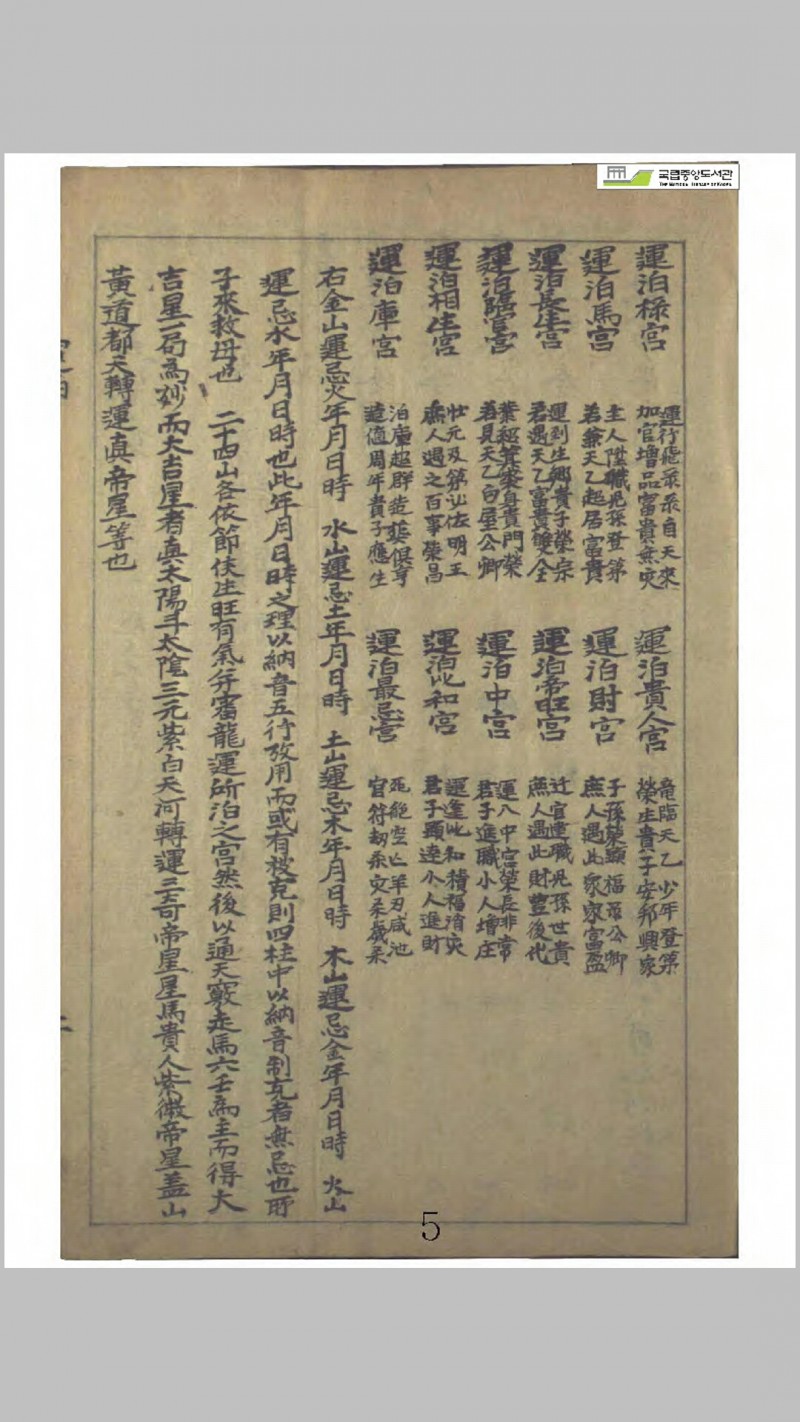 국립중앙도서관
THE NATIONAL LIBRARY OF KOREA
運泊祿宮 運行飛來乘自天來 加官增品富貴無灾 運泊貴人宮 竜臨天乙少年登第 榮生貴子安邦興家
運泊馬宮 主人陞職兒孫登第 若兼天乙起居富貴 運泊財宮 子孫榮顯福召公卿 庶人遇此家家富盈
運泊長生宮 運到生鄉貴子榮宗 君遇天乙富貴雙全 運泊帝旺宮 迁官重職兒孫世貴 庶人遇此財豐後代
運泊臨官宮 業紹箕裘身貴門榮 若見天乙白屋公卿 運泊中宮 運入中宮榮長非常 君子進職小人增庄
運泊相生宮 壯元及第必佐明王 庶人遇之百事榮昌 運泊比和宮 運逢比和積福消灾 君子顯達小人進財
運泊庫宮 泊庫超群造葬俱亨 遠應周年貴子應生 運泊最忌宮 死絶空亡羊刃咸池 官符刼杀灾杀歲杀
右金山運忌火年月日時 水山運忌土年月日時 土山運忌木年月日時 木山運忌金年月日時 火山
運忌水年月日時也此年月日時之理以納音五行攷用而或有被克則四柱中以納音制克者無忌也所
子來救母也 二十四山各依節侯生旺有氣并審龍運所泊之宮然後以通天竅走馬六壬爲主而得大
吉星一局爲妙而大吉星者眞太陽斗太陰三元紫白天河轉運三奇帝皇星馬貴人紫微帝星盖山
黃道都天轉運眞帝星等也
5